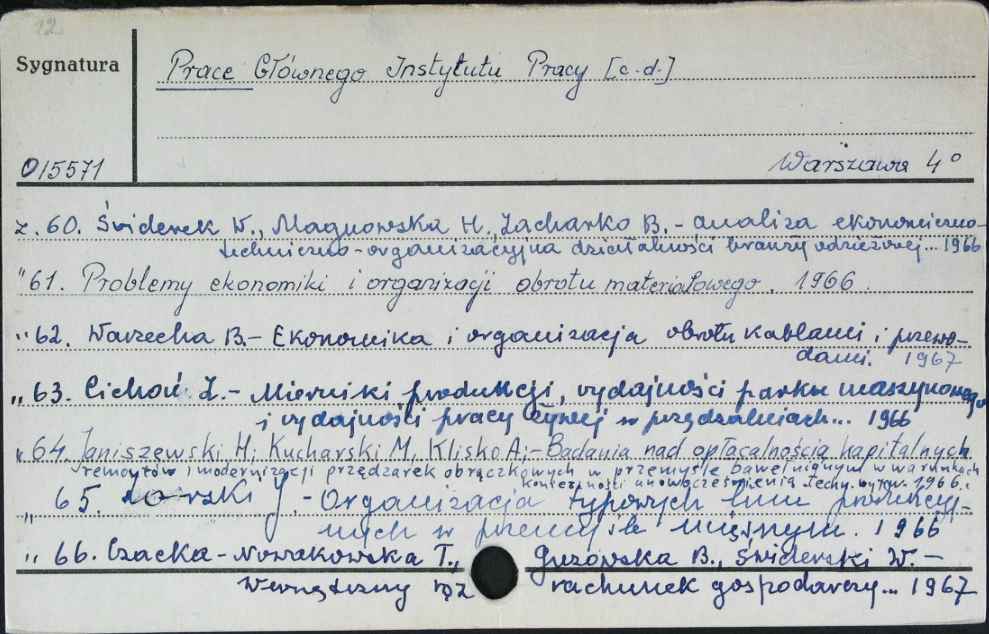 12
Sygnatura
Prace Głównego Instytutu Pracy [c.d.]
0/5571
Warszawa 4°
z. 60. Świderek W., Magnowska H., Zacharko B. - Analiza ekonomiczno-
techniczno-organizacyjna działalności branży odzieżowej... 1966
" 61. Problemy ekonomiki i organizacji obrotu materiałowego. 1966
" 62. Warzecha B. - Ekonomika i organizacja obrotu kablami i przewo-
dami. 1967
" 63. Cichoń Z. - Mierniki produkcji, wydajności parku maszynowego
i wydajności pracy żywej w przędzalniach... 1966
64. Janiszewski H; Kucharski M, Klisko A; - Badania nad opłacalnością kapitalnych
remontów i modernizacji przędzarek obrączkowych w przemyśle bawełnianym w warunkach
konieczności unowocześnienia techn. wytw. 1966.
" 65. J. - Organizacja typowych linii produkcyj-
nych w przemyśle mięsnym. 1966
" 66. Czacka-Nowakowska T., Gurowska B., Świderski W. -
Wewnętrzny roz rachunek gospodarczy... 1967